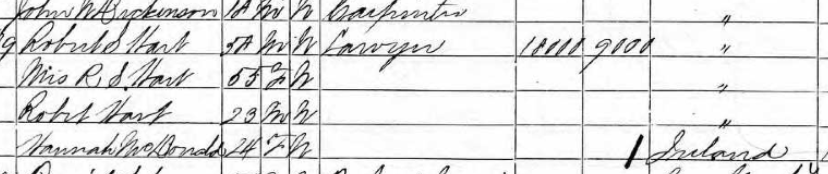 John W Dickinson 18 M W Carpenter "
9 Robert S Hart 54 M W Lawyer 18000 9000 "
Mrs R S. Hart 55 F W "
Robt Hart 23 M W "
Hannah McDonald 24 F W 1 Ireland